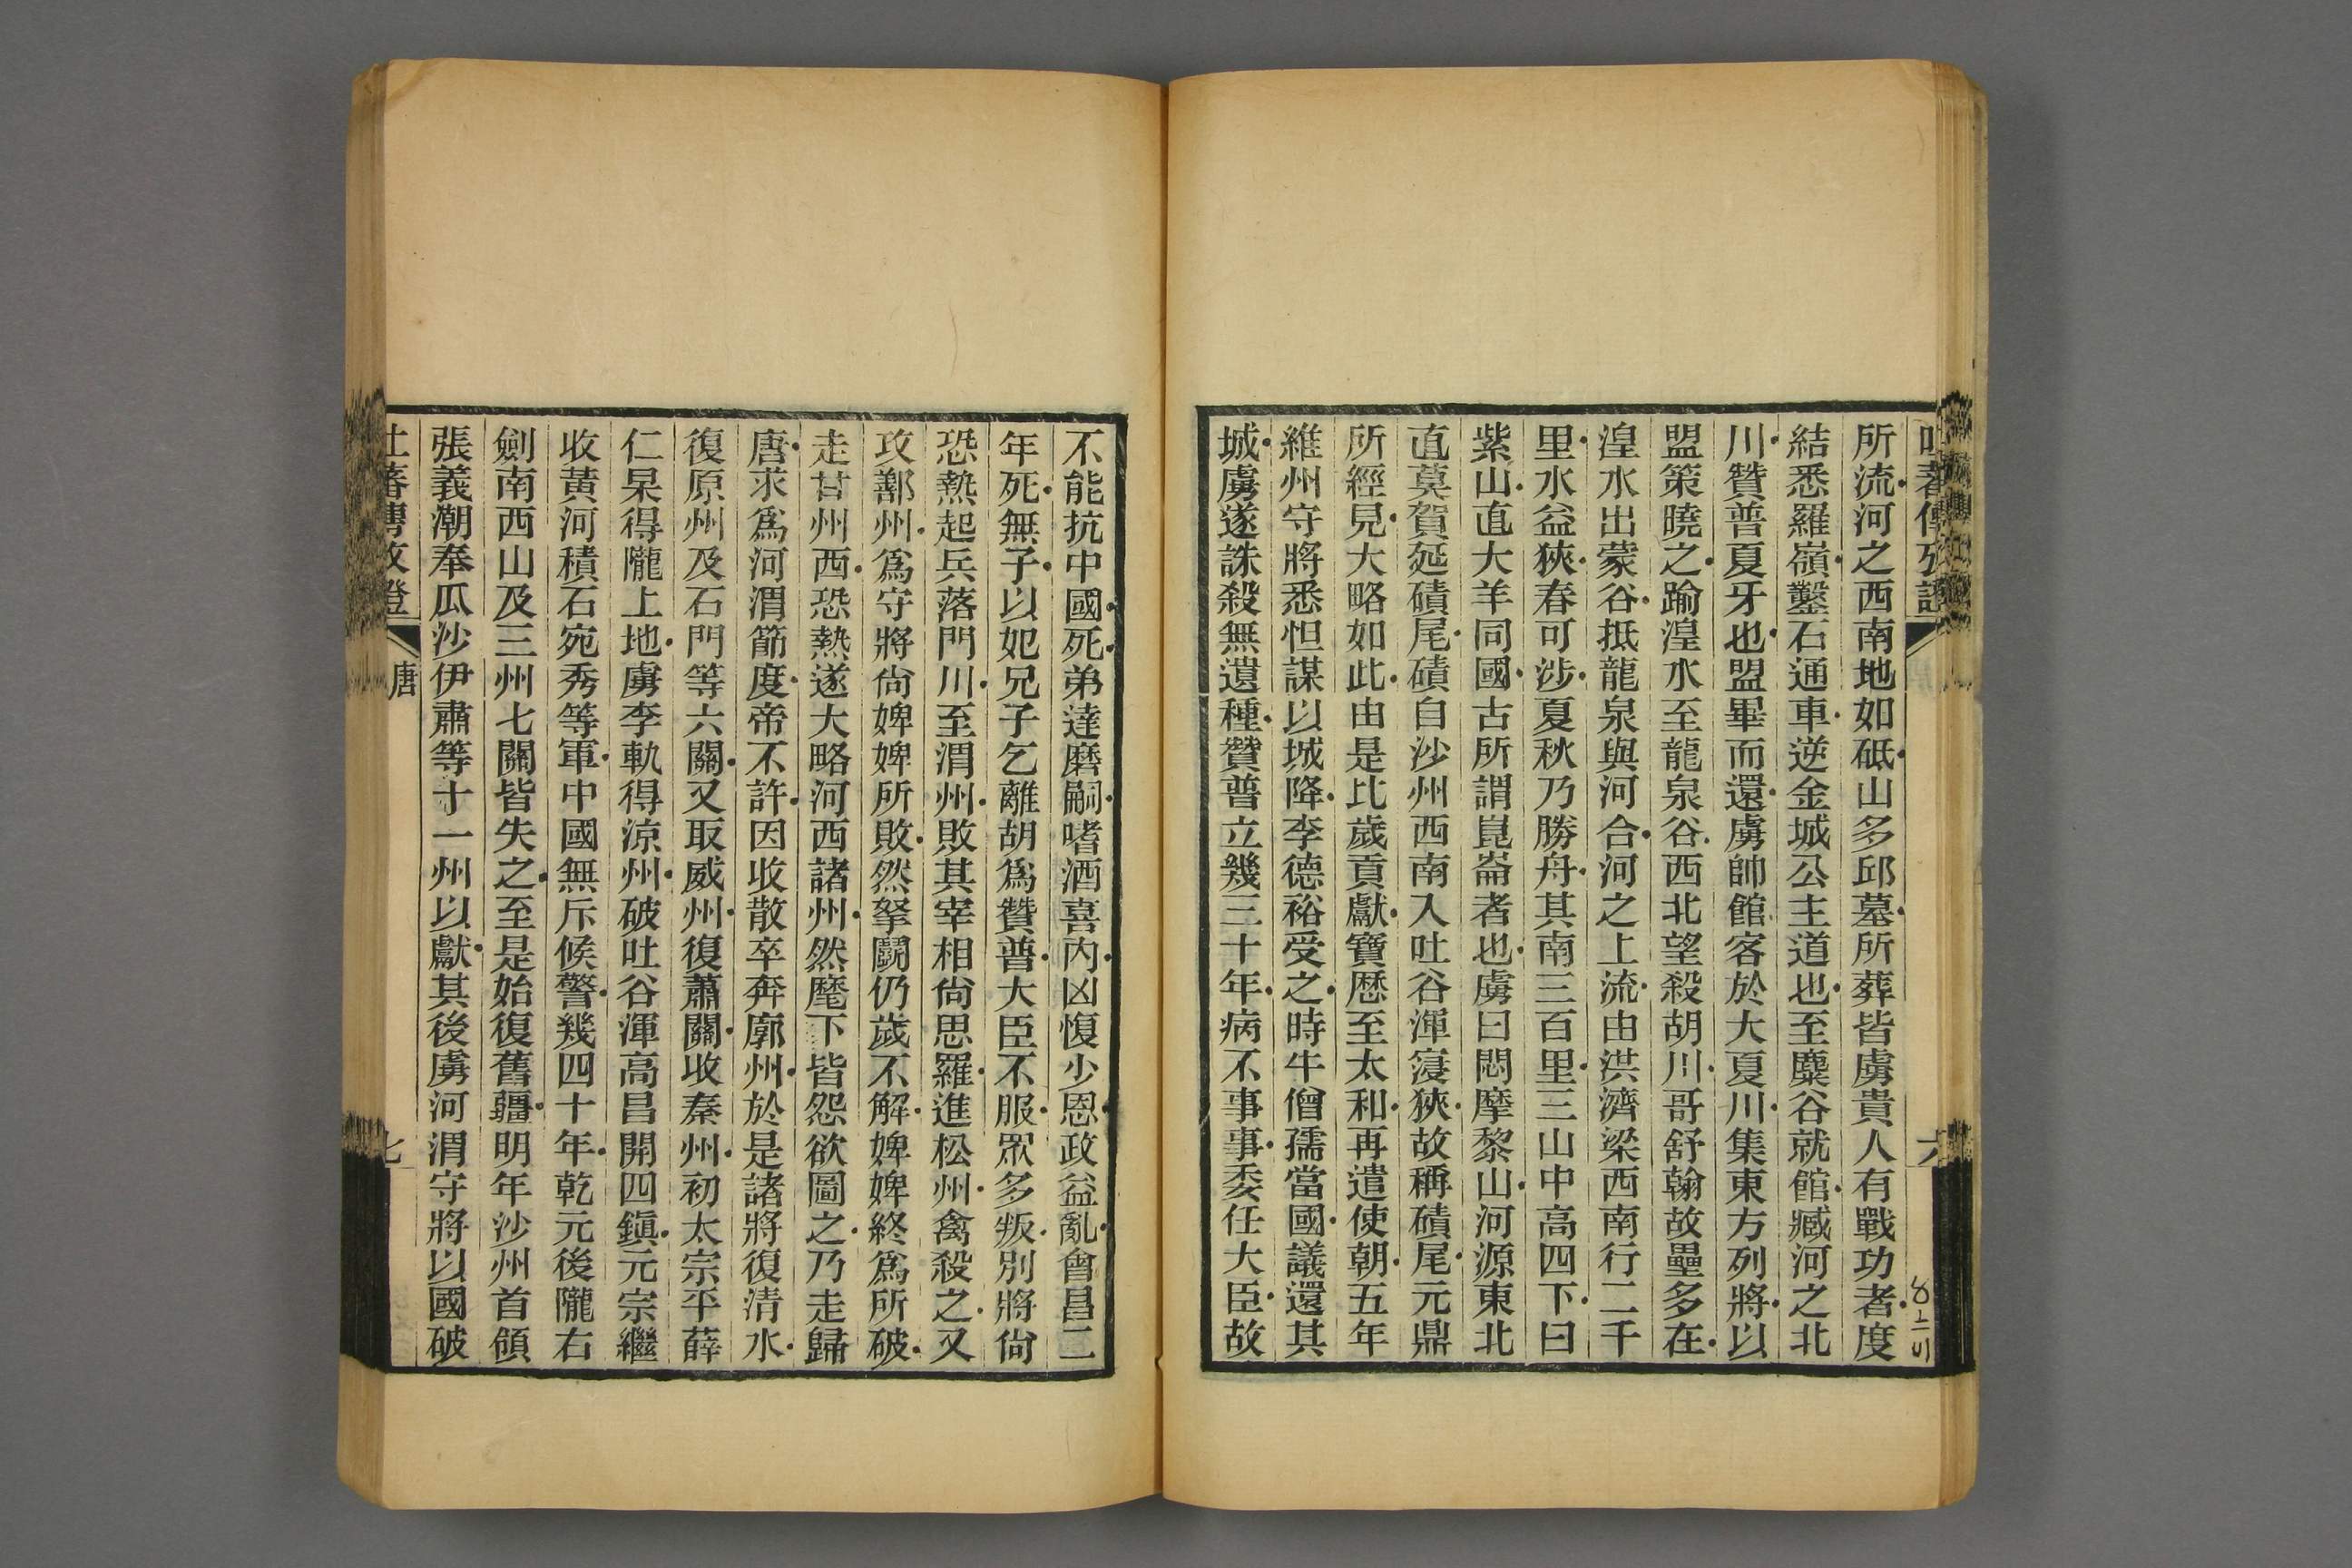 所流河之西南地如砥山多邱墓所葬皆虜貴人有戰功者度
結悉羅嶺鑿石通車逆金城公主道也至麋谷就館臧河之北
川贊普夏牙也盟畢而還虜帥館客於大夏川集東方列將以
盟策曉之踰湟水至龍泉谷西北望殺胡川哥舒翰故壘多在
湟水出蒙谷抵龍泉與河合河之上流由洪濟梁西南行二千
里水益狹春可涉夏秋乃勝舟其南三百里三山中高四下曰
紫山直大羊同國古所謂崑崙者也虜曰悶摩黎山河源東北
直莫賀延磧尾磧自沙州西南入吐谷渾寖狹故稱磧尾元鼎
所經見大略如此由是比歲貢獻寶歷至太和再遣使朝五年
維州守將悉怛謀以城降李德裕受之時牛僧孺當國議還其
城虜遂誅殺無遺種贊普立幾三十年病不事事委任大臣故
不能抗中國死弟達磨嗣嗜酒喜內凶愎少恩政益亂會昌二
年死無子以妃兄子乞離胡爲贊普大臣不服眾多叛別將尙
恐熱起兵落門川至渭州敗其宰相尙思羅進松州禽殺之又
攻鄯州爲守將尙婢婢所敗然拏鬭仍歲不解婢婢終爲所破
走甘州西恐熱遂大略河西諸州然麾下皆怨欲圖之乃走歸
唐求爲河渭節度帝不許因收散卒奔廓州於是諸將復清水
復原州及石門等六關又取威州復蕭關收秦州初太宗平薛
仁杲得隴上地虜李軌得涼州破吐谷渾高昌開四鎭元宗繼
收黃河積石宛秀等軍中國無斥候警幾四十年乾元後隴右
劍南西山及三州七關皆失之至是始復舊疆明年沙州首領
張義潮奉瓜沙伊肅等十一州以獻其後虜河渭守將以國破
唐
七